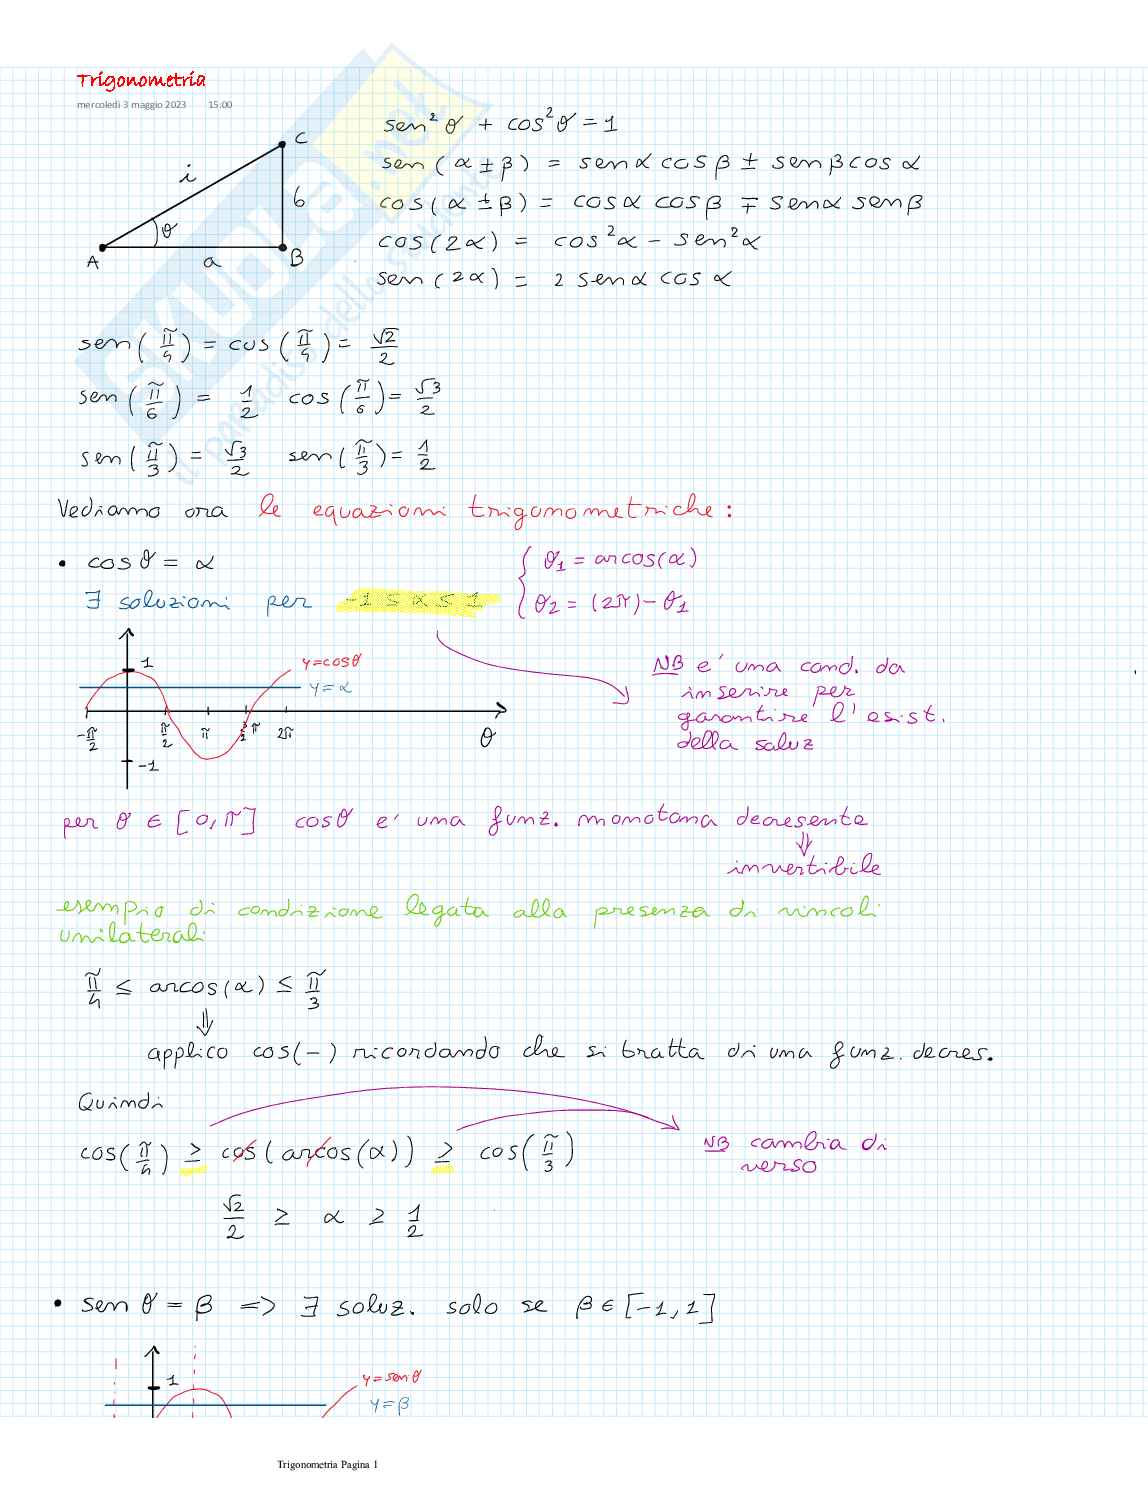 Trigonometria
mercoledì 3 maggio 2023 15:00
sen² θ + cos² θ = 1
sen (α ± β) = sen α cos β ± sen β cos α
cos (α ± β) = cos α cos β ∓ sen α sen β
cos (2α) = cos² α - sen² α
sen (2α) = 2 sen α cos α
C
i
b
θ
A
a
B
SKUOLA.net
il paradiso dello studente
sen (π/4) = cos (π/4) = √2/2
sen (π/6) = 1/2 cos (π/6) = √3/2
sen (π/3) = √3/2 sen (π/3) = 1/2
Vediamo ora le equazioni trigonometriche :
• cos θ = α
{ θ1 = arcos(α)
θ2 = (2π) - θ1
∃ soluzioni per -1 ≤ α ≤ 1
1
y = cos θ
y = α
-π/2 π/2 π 3/2 π 2π θ
-1
NB e' una cond. da
inserire per
garantire l'esist.
della soluz
per θ ∈ [0, π] cos θ e' una funz. monotona decresente
⇓
invertibile
esempio di condizione legata alla presenza di vincoli
unilaterali
π/4 ≤ arcos(α) ≤ π/3
⇓
applico cos(-) ricordando che si tratta di una funz. decres.
Quindi
cos(π/4) ≥ cos(arcos(α)) ≥ cos(π/3)
NB cambia di
verso
√2/2 ≥ α ≥ 1/2
• sen θ = β => ∃ soluz. solo se β ∈ [-1, 1]
1
y = sen θ
y = β
Trigonometria Pagina 1